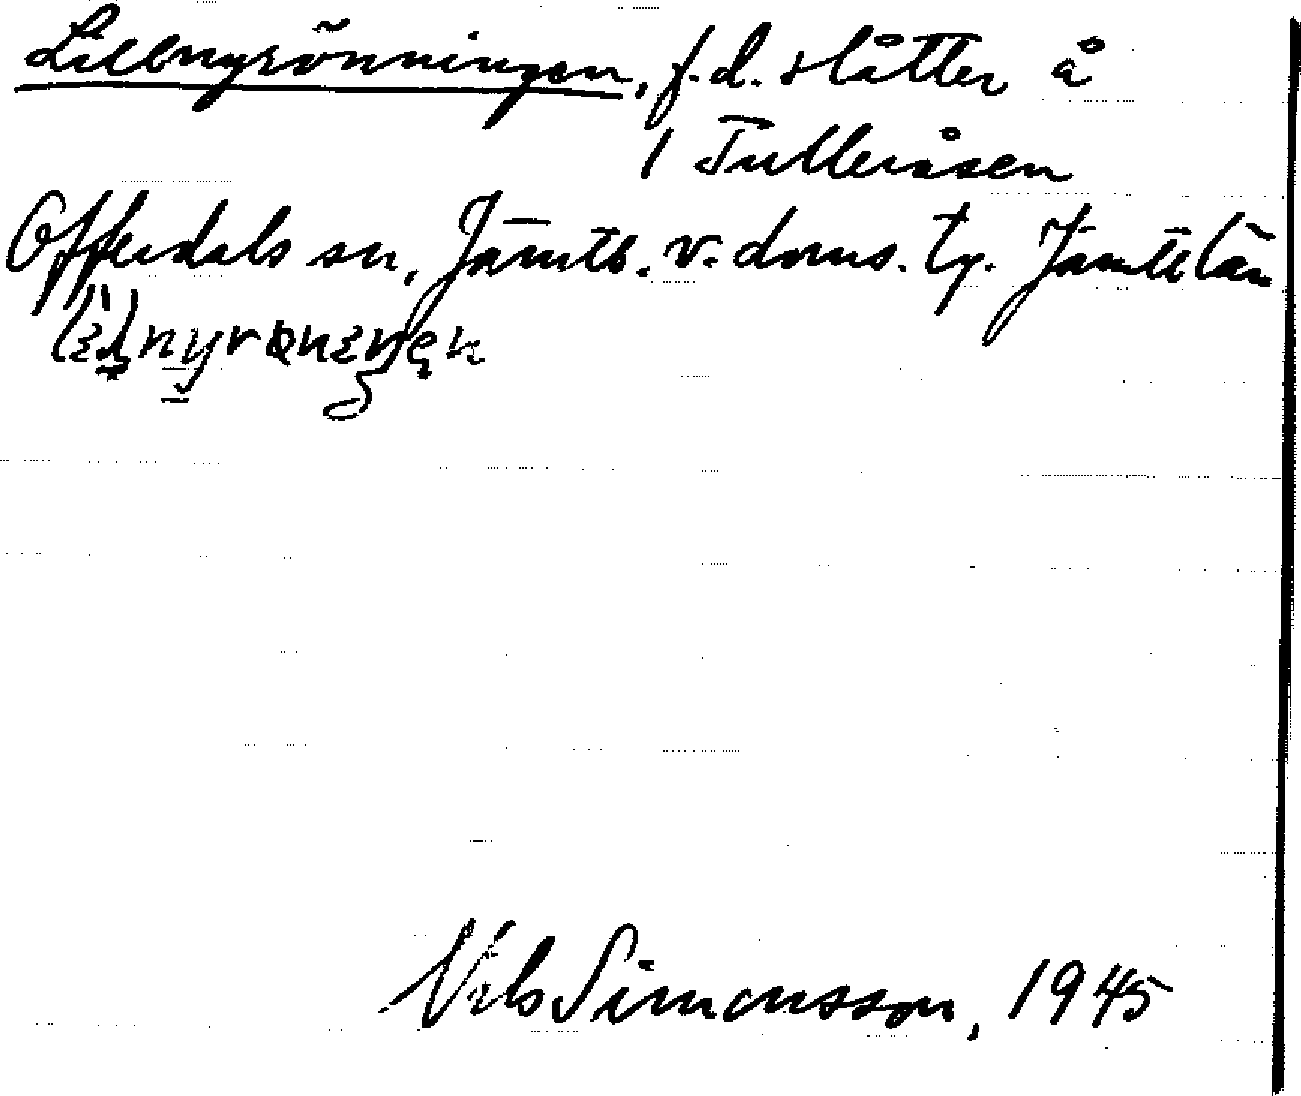 Lillnyrönningen, f.d. slåtter å
1 Tulleråsen
Offerdals sn, Jämtl. v. doms. tg. Jämtl län
Nils Simonsson, 1945